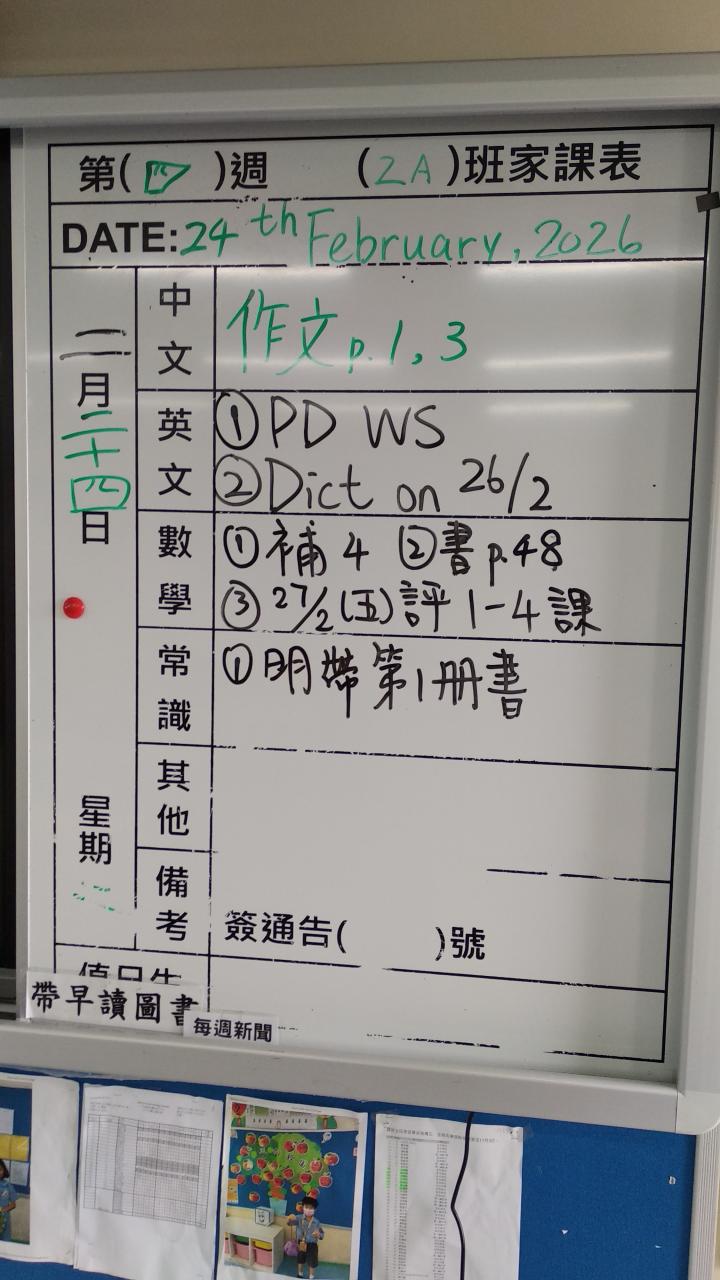 第(四)週 (2A)班家課表
DATE: 24th February, 2026
二月二十四日
星期二
中文
作文 p.1, 3
英文
① PD WS
② Dict on 26/2
數學
① 補 4 ② 書 p.48
③ 27/2 (五) 評 1-4 課
常識
① 明帶第1冊書
其他
備考
簽通告( )號
值日生
帶早讀圖書
每週新聞